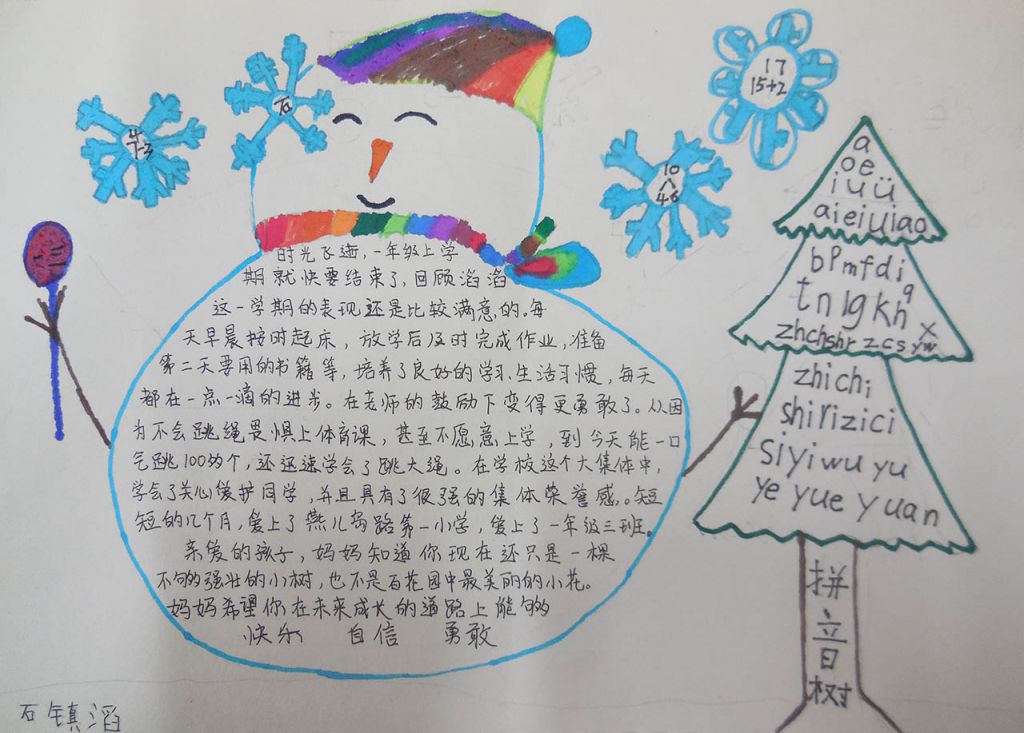 17
15+2
石
4
7-3
10
4 6
a
oe
i u ü
aieiuiiao
bpmfdi
q
tnlgkh
x
zhchshr z c s yw
zhichi
shirizici
siyiwuyu
ye yue yuan
拼
音
树
时光飞逝，一年级上学
期就快要结束了，回顾滔滔
这一学期的表现还是比较满意的。每
天早晨按时起床，放学后及时完成作业，准备
第二天要用的书籍等，培养了良好的学习、生活习惯，每天
都在一点一滴的进步。在老师的鼓励下变得更勇敢了。从因
为不会跳绳畏惧上体育课，甚至不愿意上学，到今天能一口
气跳100多个，还迅速学会了跳大绳。在学校这个大集体中，
学会了关心爱护同学，并且具有了很强的集体荣誉感。短
短的几个月，爱上了燕儿岛路第一小学，爱上了一年级三班。
亲爱的孩子，妈妈知道你现在还只是一棵
不够强壮的小树，也不是百花园中最美丽的小花。
妈妈希望你在未来成长的道路上能够
快乐 自信 勇敢
石镇滔